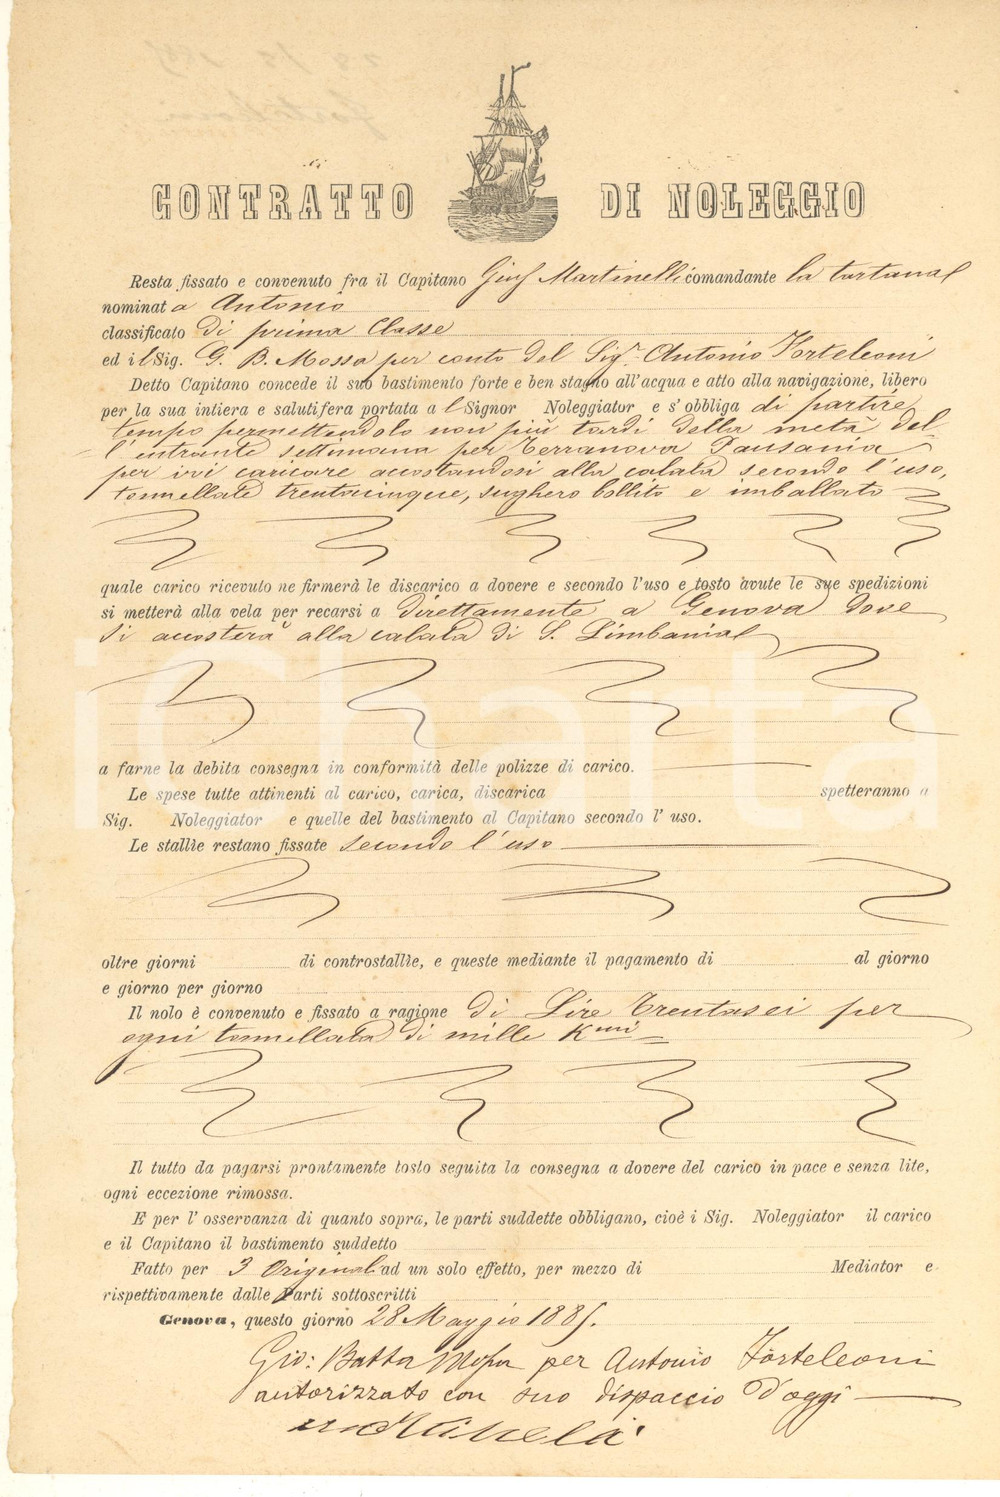 CONTRATTO DI NOLEGGIO
Resta fissato e convenuto fra il Capitano Gius Martinelli comandante la tartana
nominata Antonio
classificato di prima Classe
ed il Sig. G. B. Mossa per conto del Sigr. Antonio Forteleoni
Detto Capitano concede il suo bastimento forte e ben stagno all'acqua e atto alla navigazione, libero
per la sua intiera e salutifera portata al Signor Noleggiator e s'obbliga di partire
tempo permettendolo non più tardi della metà del-
l'entrante settimana per Terranova Pausania
per ivi caricare accostandosi alla calata secondo l'uso,
tonnellate trentacinque, sughero bollito e imballato
quale carico ricevuto ne firmerà le discarico a dovere e secondo l'uso e tosto avute le sue spedizioni
si metterà alla vela per recarsi a direttamente a Genova dove
si accosterà alla calata di S. Limbania
a farne la debita consegna in conformità delle polizze di carico.
Le spese tutte attinenti al carico, carica, discarica spetteranno a
Sig. Noleggiator e quelle del bastimento al Capitano secondo l'uso.
Le stallìe restano fissate secondo l'uso
oltre giorni di controstallìe, e queste mediante il pagamento di al giorno
e giorno per giorno
Il nolo è convenuto e fissato a ragione di Lire Trentasei per
ogni tonnellata di mille Kmi
Il tutto da pagarsi prontamente tosto seguita la consegna a dovere del carico in pace e senza lite,
ogni eccezione rimossa.
E per l'osservanza di quanto sopra, le parti suddette obbligano, cioè i Sig. Noleggiator il carico
e il Capitano il bastimento suddetto
Fatto per 3 Originali ad un solo effetto, per mezzo di Mediator e
rispettivamente dalle Parti sottoscritti
Genova, questo giorno 28 Maggio 1885.
Gio: Batta Mossa per Antonio Forteleoni
autorizzato con suo dispaccio d'oggi
iCharta